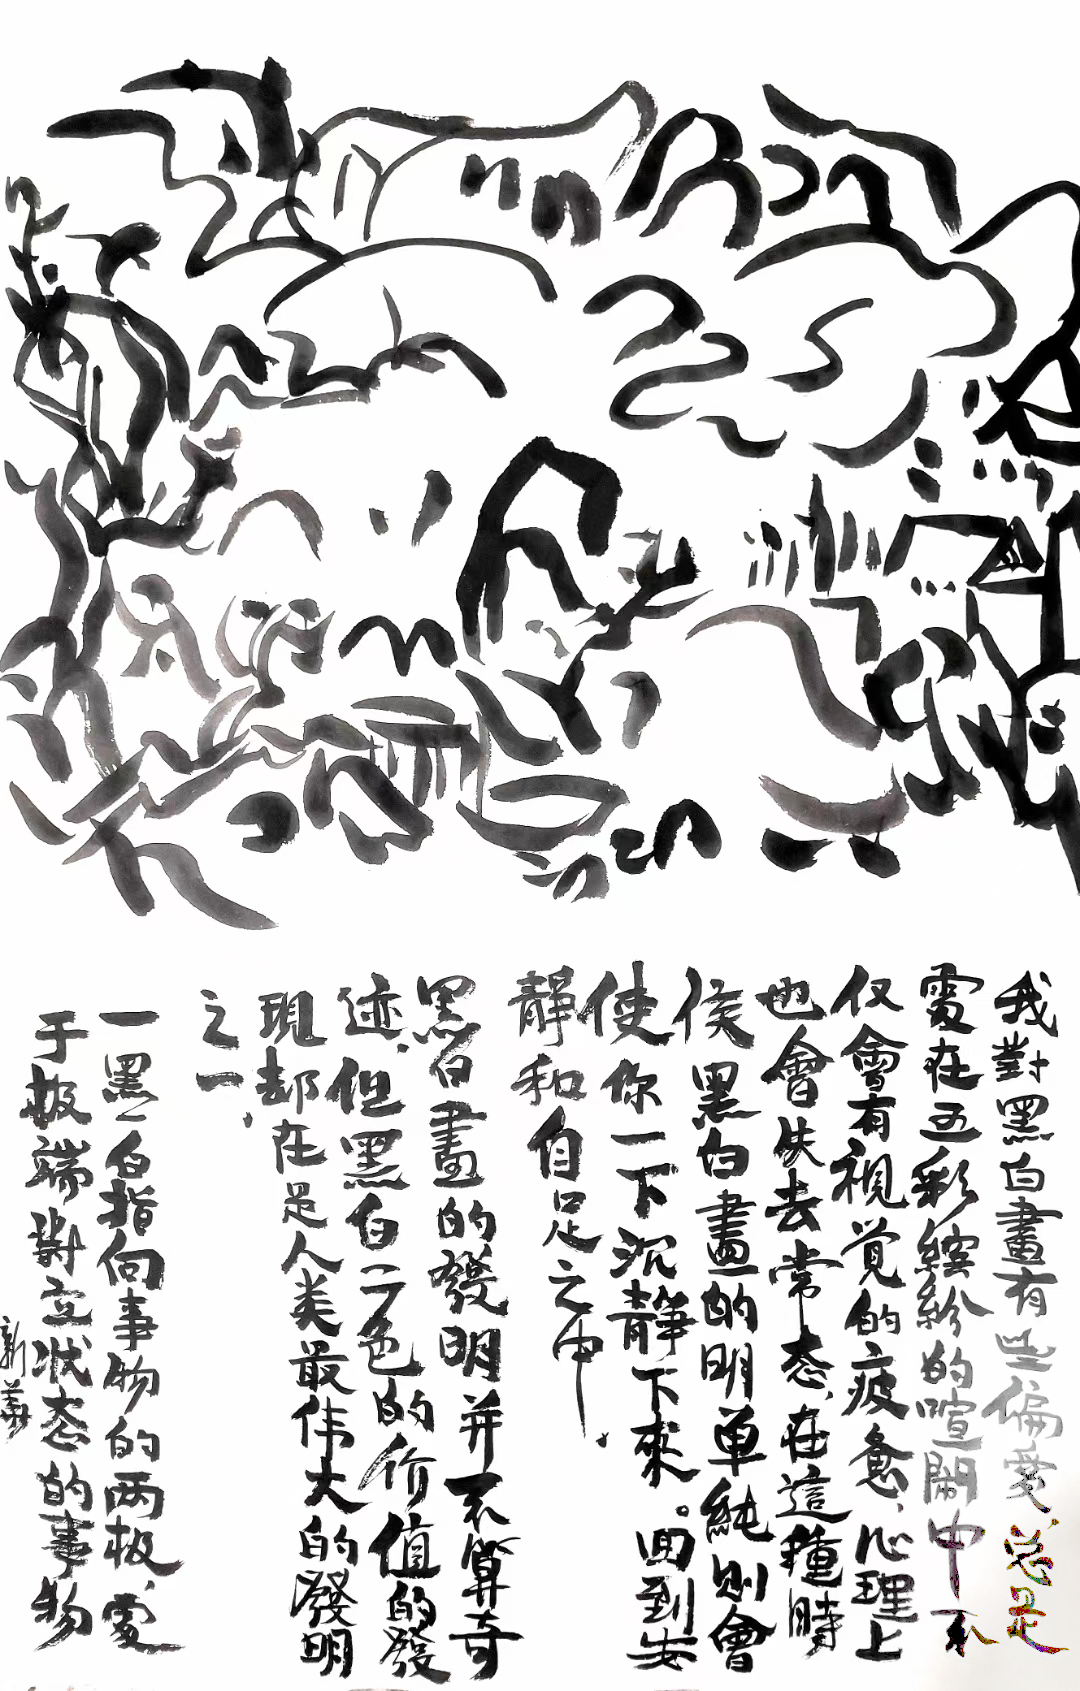 我對黑白畫有些偏愛,总是
處在五彩缤紛的喧闹中不
仅會有視觉的疲惫,心理上
也會失去常态,在這種時
候黑白畫的明单純则會
使你一下沉静下來。回到安
靜和自足之中,
黑白畫的發明并不算奇
迹,但黑白二色的价值的發
現却在是人类最伟大的發明
之一,
一黑一白指向事物的两极,處
于极端對立状态的事物
新義